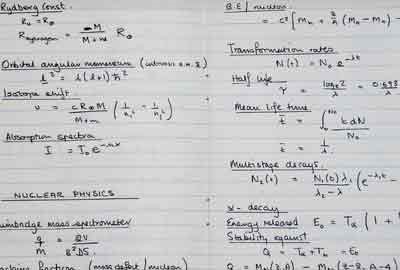 Rydberg Const.
R∞ = R∞
R hydrogen = M / M+m R∞
Orbital angular momentum (intrinsic
l² = l(l+1)ħ²
Isotope shift.
υ = cR∞M / M+m (1/n₁² - 1/n₂²)
Absorption spectra
I = I₀e
NUCLEAR PHYSICS
mass spectrometer
q/M =
fraction (mass defect / nucleon)
B.E / nucleon
= c² [Mn + Z/A (MH - Mn) -
Transformation rates
N(t) = N₀ e^-λt
Half life
τ = loge2 / λ = 0.693 / λ
Mean life time
t̄ = ∫ t dN / N₀
t̄ = 1/λ
Multistage decays.
N₂(t) = N₁(0) λ₁ / λ₂ - λ₁ (e^-λ₁t -
α - decay
Energy released E₀ = Tα (1 +
Stability against
Q = Tα + Tb = E₀
(Z-2, A-4)